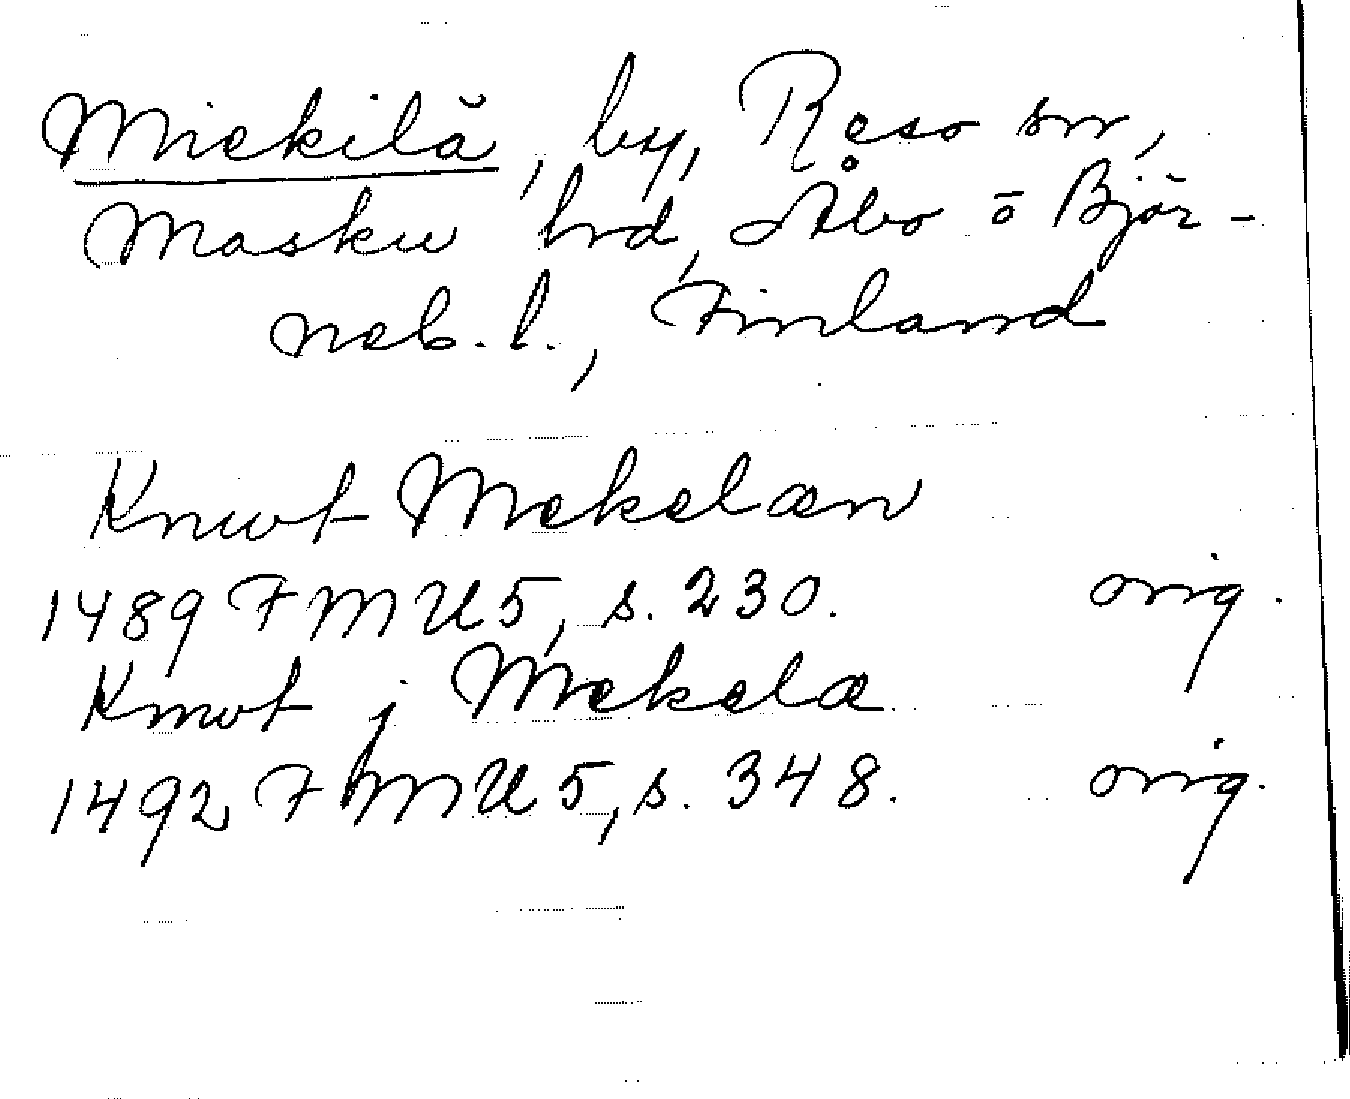 Miekilä, by, Reso sn,
Masku hrd, Åbo o Björ-
neb. l., Finland
Knwt Mekelæn
1489 FMU 5, s. 230. orig.
Knwt j Mekelæ
1492 FMU 5, s. 348. orig.